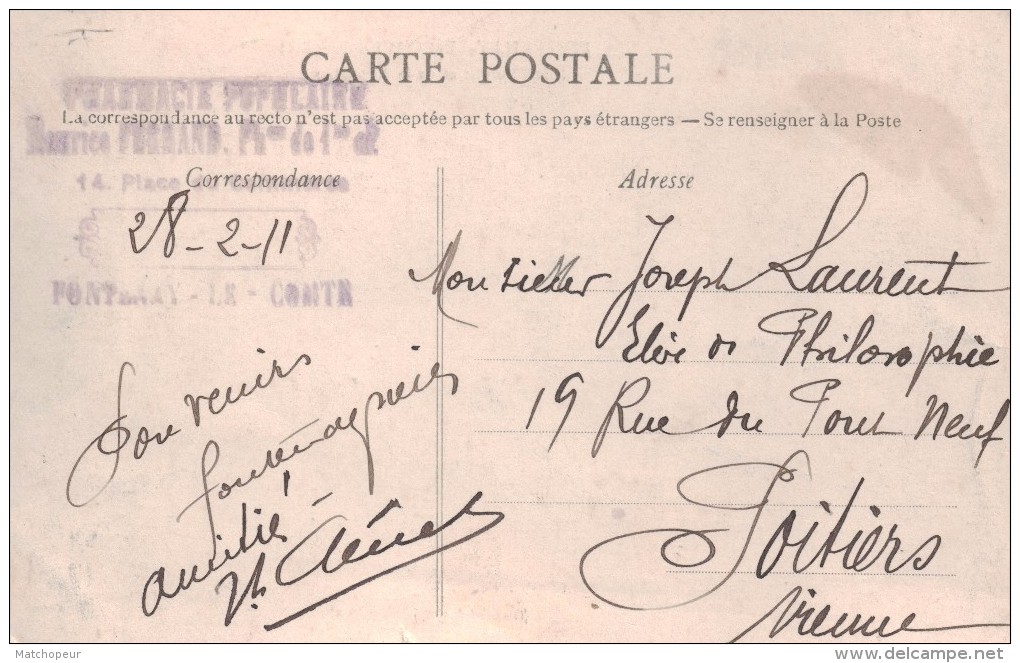 CARTE POSTALE
PHARMACIE POPULAIRE
La correspondance au recto n'est pas acceptée par tous les pays étrangers — Se renseigner à la Poste
Maurice
14. Place du Commerce
Correspondance
Adresse
28-2-11
FONTENAY - LE - COMTE
Monsieur Joseph Laurent
Elève de Philosophie
19 Rue du Pont Neuf
Poitiers
Vienne
Souvenirs
fontenaysiens
amitié
Matchopeur
delcampe.net